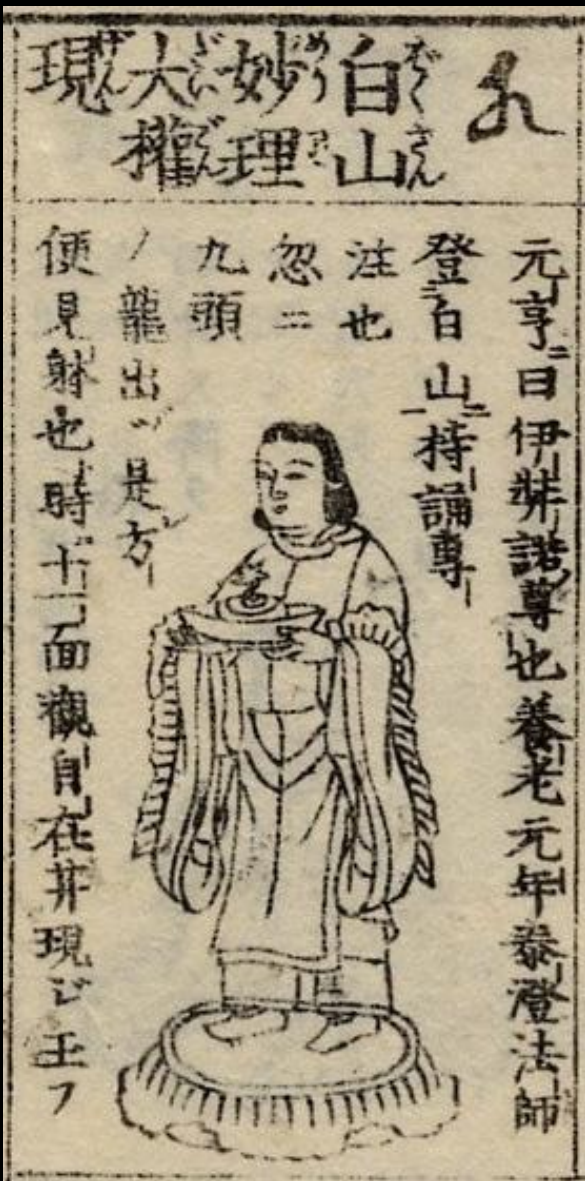 白山
妙理
大權
現
元亨ニ曰伊弉諾尊也養老元年泰澄法師
登㆓白山㆒ニ持誦專
注也
忽ニ
九頭
ノ龍出ヅ是方
便見躰也時十一面觀自在𦬇現ジ玉フ